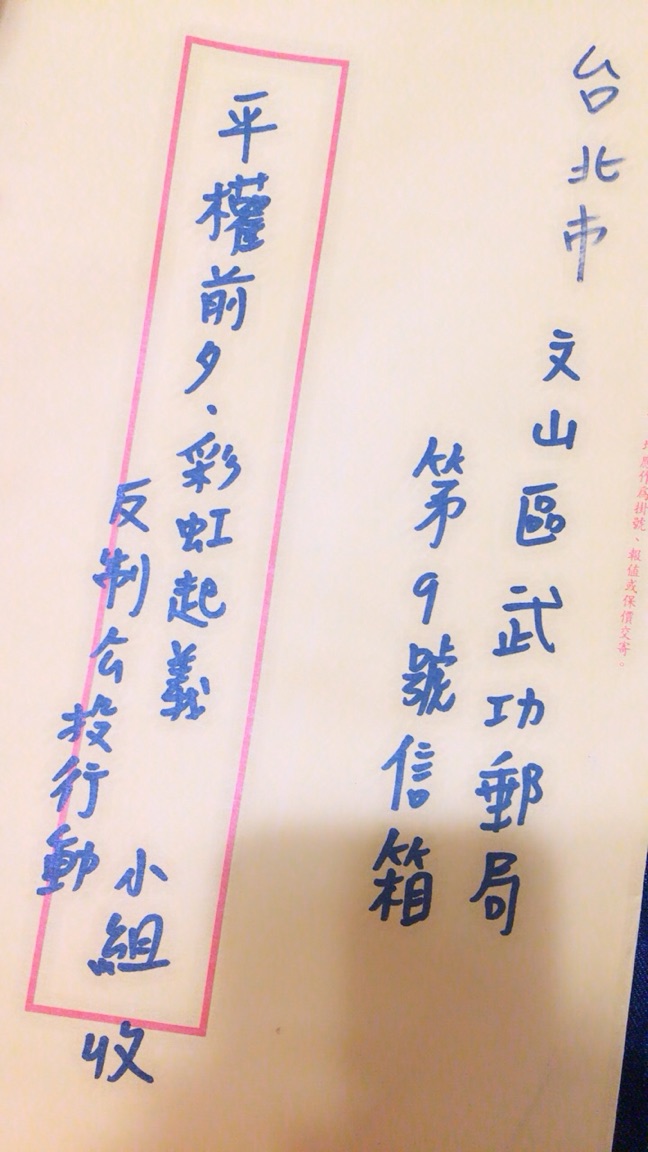 台北市 文山區武功郵局
第9號信箱
平權前夕、彩虹起義
反制公投行動
小組 收
掛號、報值或保價交寄。